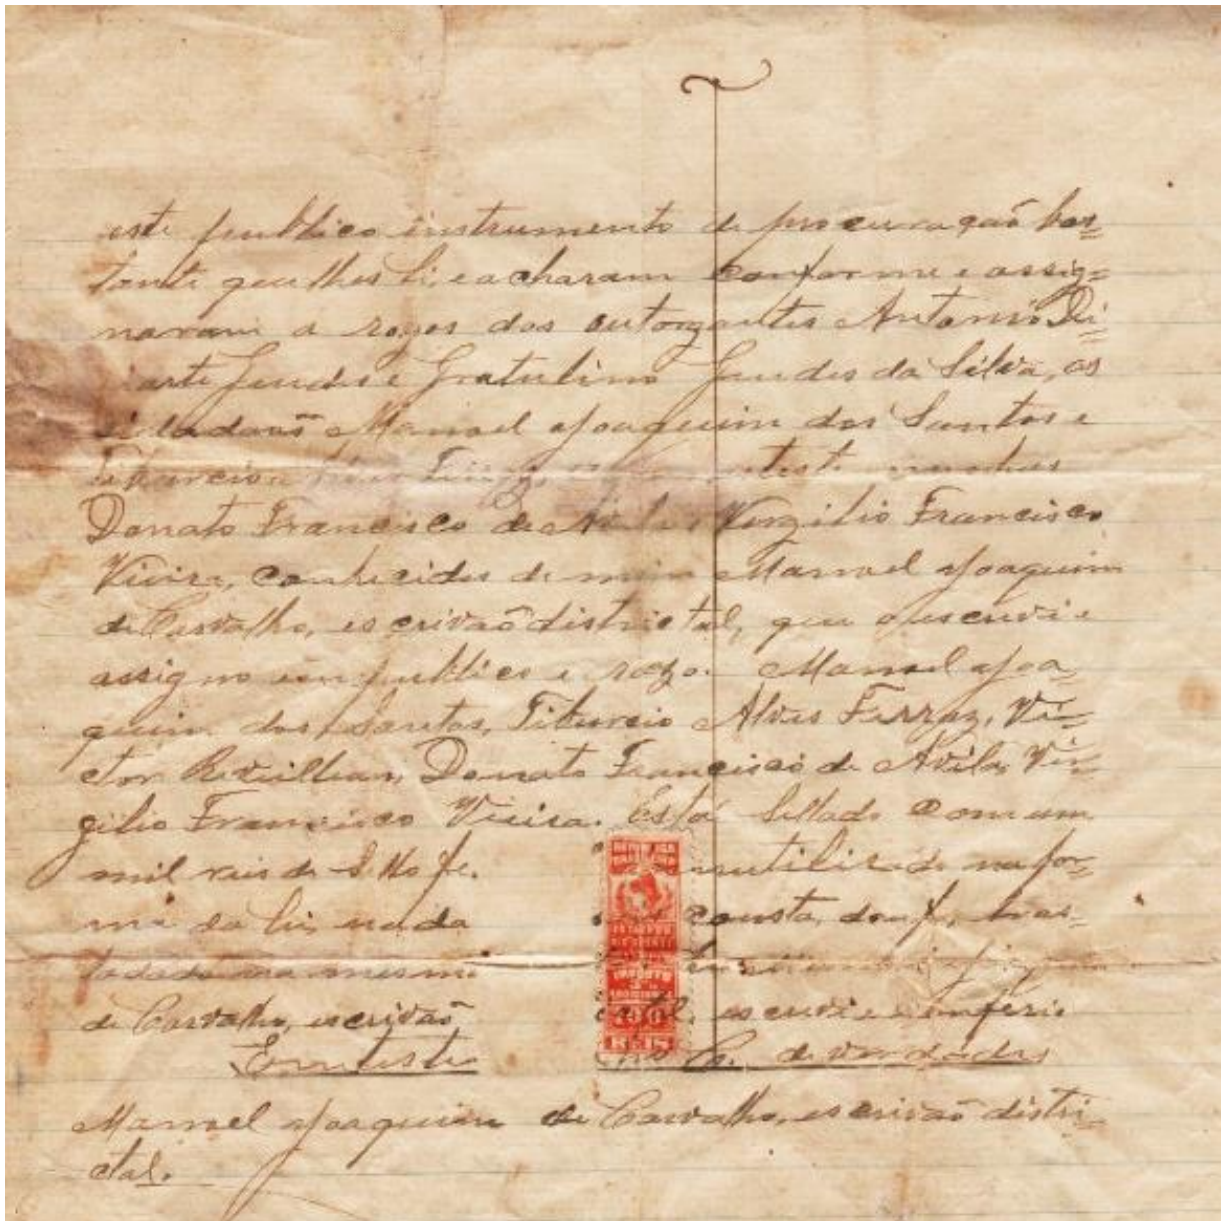 este publico instrumento de procuração bas=
tante que lhes li, e acharam conforme e assig=
naram a rogos dos outorgantes Antonio Du=
arte Jendes e Gratulino Jendes da Silva, os
cidadãos Manoel Joaquim dos Santos e
Tiburcio
Donato Francisco de Avila Virgilio Francisco
Vieira, conhecidos de mim Manoel Joaquim
de Carvalho, escrivão districtal, que o escrevi e
assigno em publico e razo. Manoel Joa
quim dos Santos, Tiburcio Alves Ferraz, Vi-
ctor Donato Francisco de Avila, Vir
gilio Francisco Vieira. Está sellado com um
mil reis de sello fe. inutilisado na for=
ma da lei, nada consta, dou fé, tras=
ladada na mesma
de Carvalho, escrivão escrevi e conferio
Em teste de verdade
Manoel Joaquim de Carvalho, escrivão distri-
ctal.
REIS